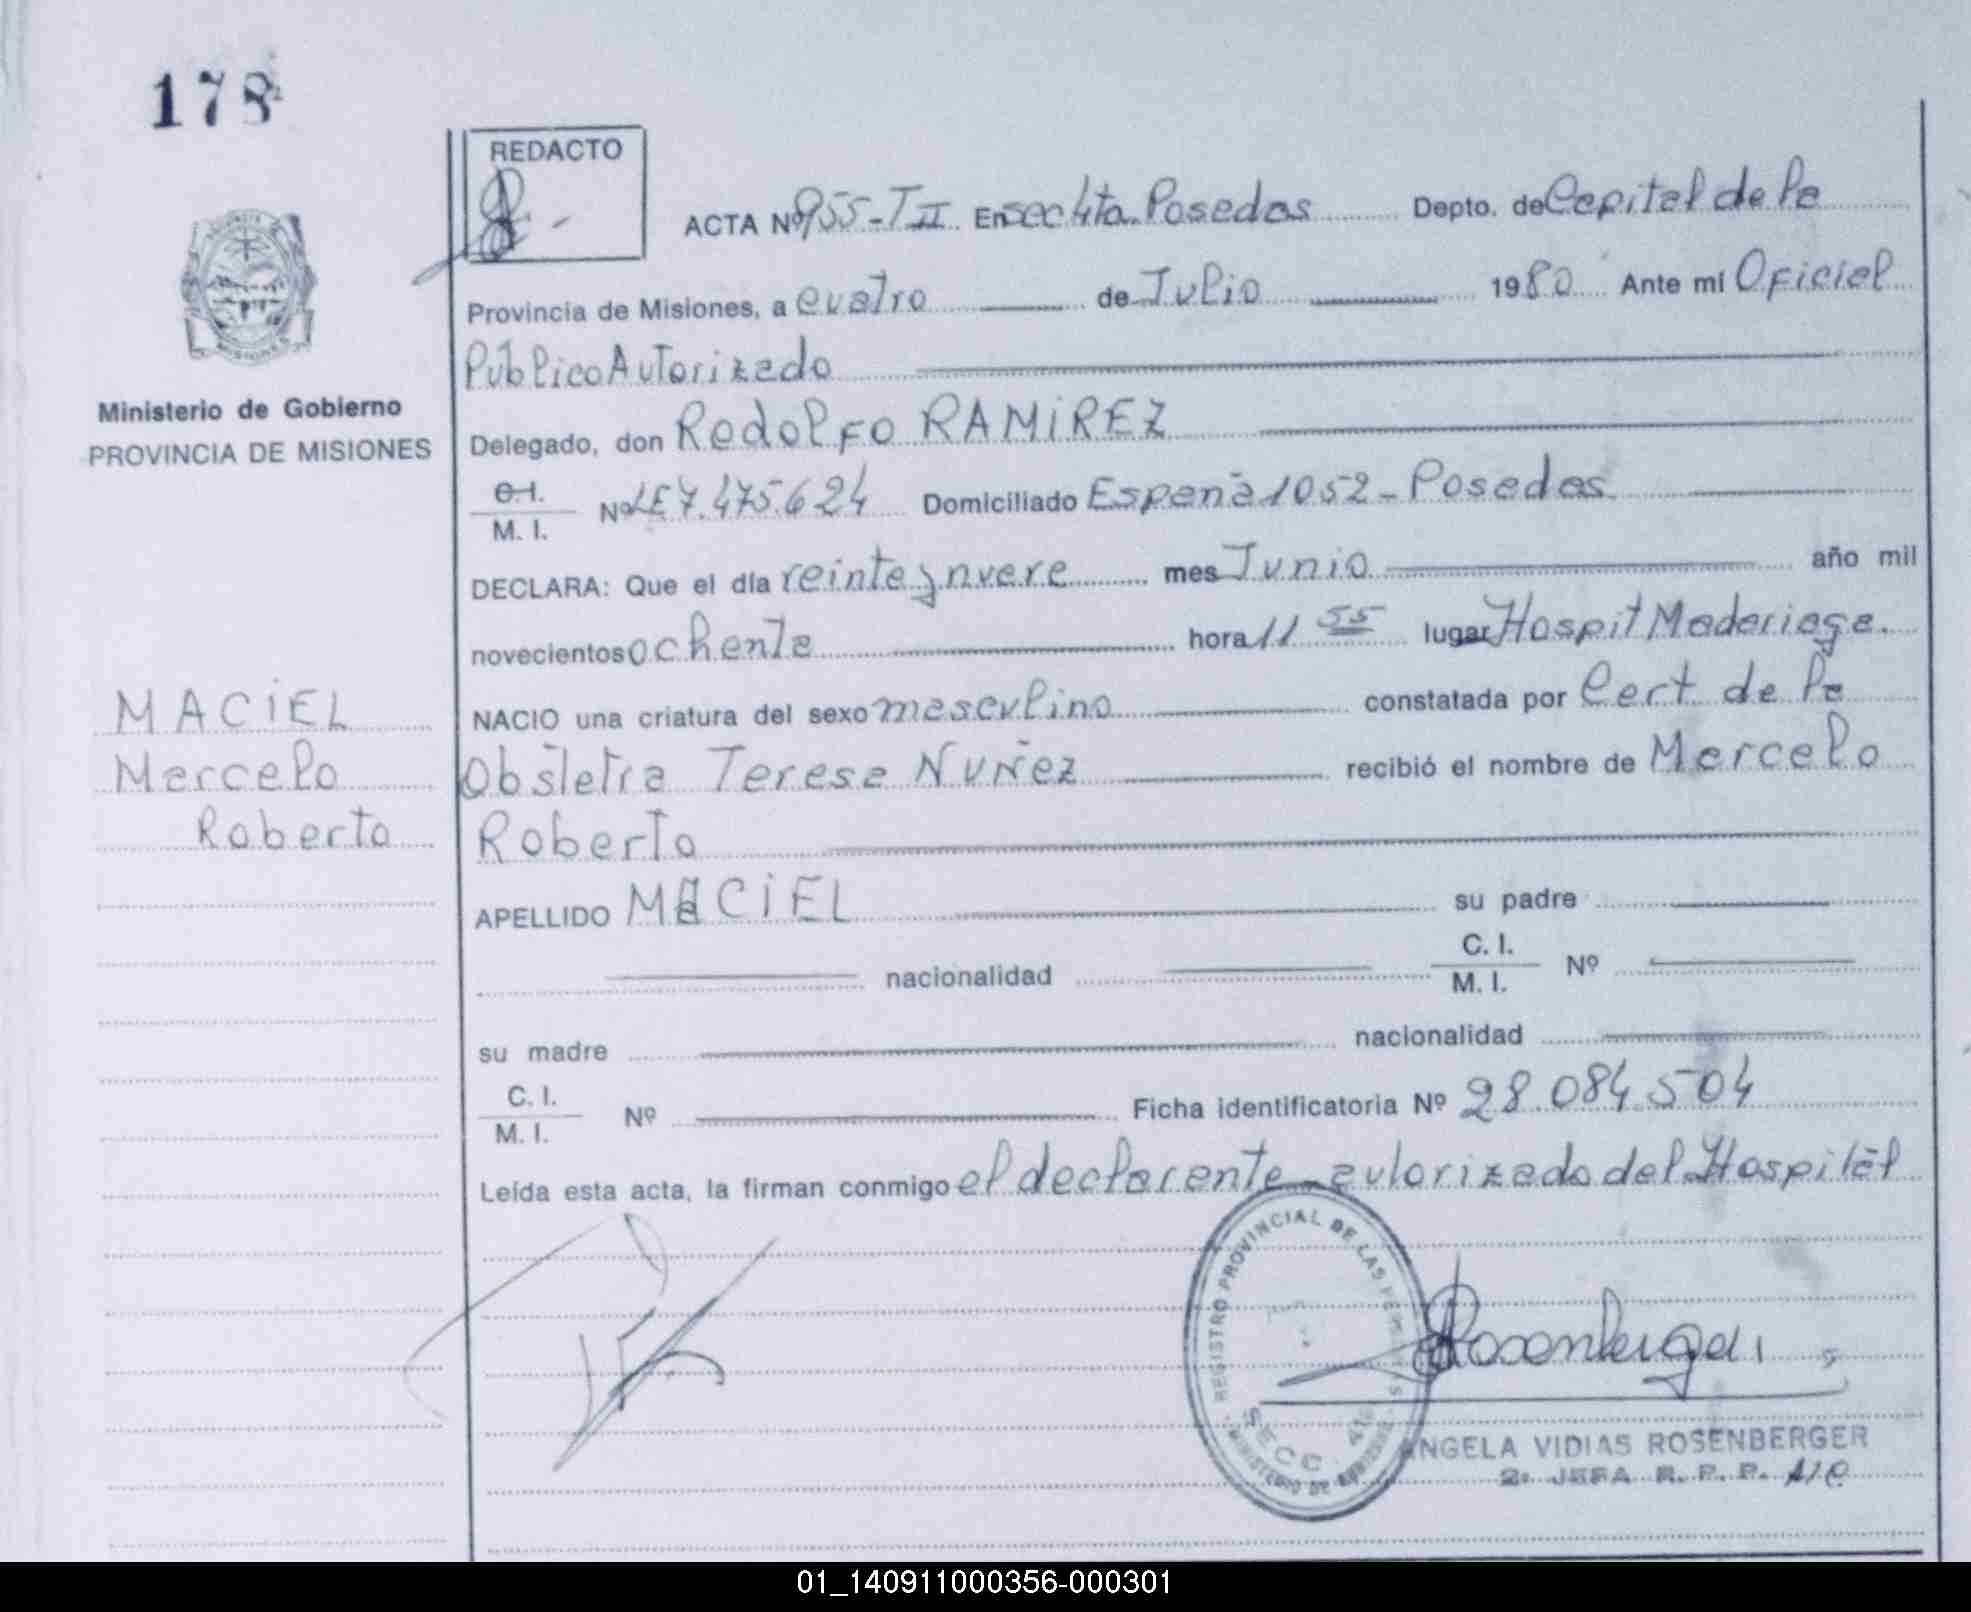 178
REDACTO
ACTA Nº 955-TII En secc 4ta Posadas Depto. de Capital de la
Provincia de Misiones, a cuatro de Julio 1980 Ante mi Oficial
Público Autorizado
Ministerio de Gobierno
PROVINCIA DE MISIONES
Delegado, don Rodolfo RAMIREZ
C.I. M. I. Nº LE 7.475.624 Domiciliado España 1052 - Posadas
DECLARA: Que el día veinte y nueve mes Junio año mil
novecientos ochenta hora 11 55 lugar Hospit Madariaga.
MACIEL
Marcelo
Roberto
NACIO una criatura del sexo masculino constatada por Cert de la
Obstetra Teresa NUÑEZ recibió el nombre de Marcelo
Roberto
APELLIDO MACIEL su padre
nacionalidad C. I. M. I. Nº
su madre nacionalidad
C. I. M. I. Nº Ficha identificatoria Nº 28.084.504
Leída esta acta, la firman conmigo el declarante autorizado del Hospital
REGISTRO PROVINCIAL DE LAS PERSONAS
SECC. 4ta
MINISTERIO DE GOBIERNO
Rosenberger
ANGELA VIDIAS ROSENBERGER
2ª JEFA R. P. P. A/C
01_140911000356-000301